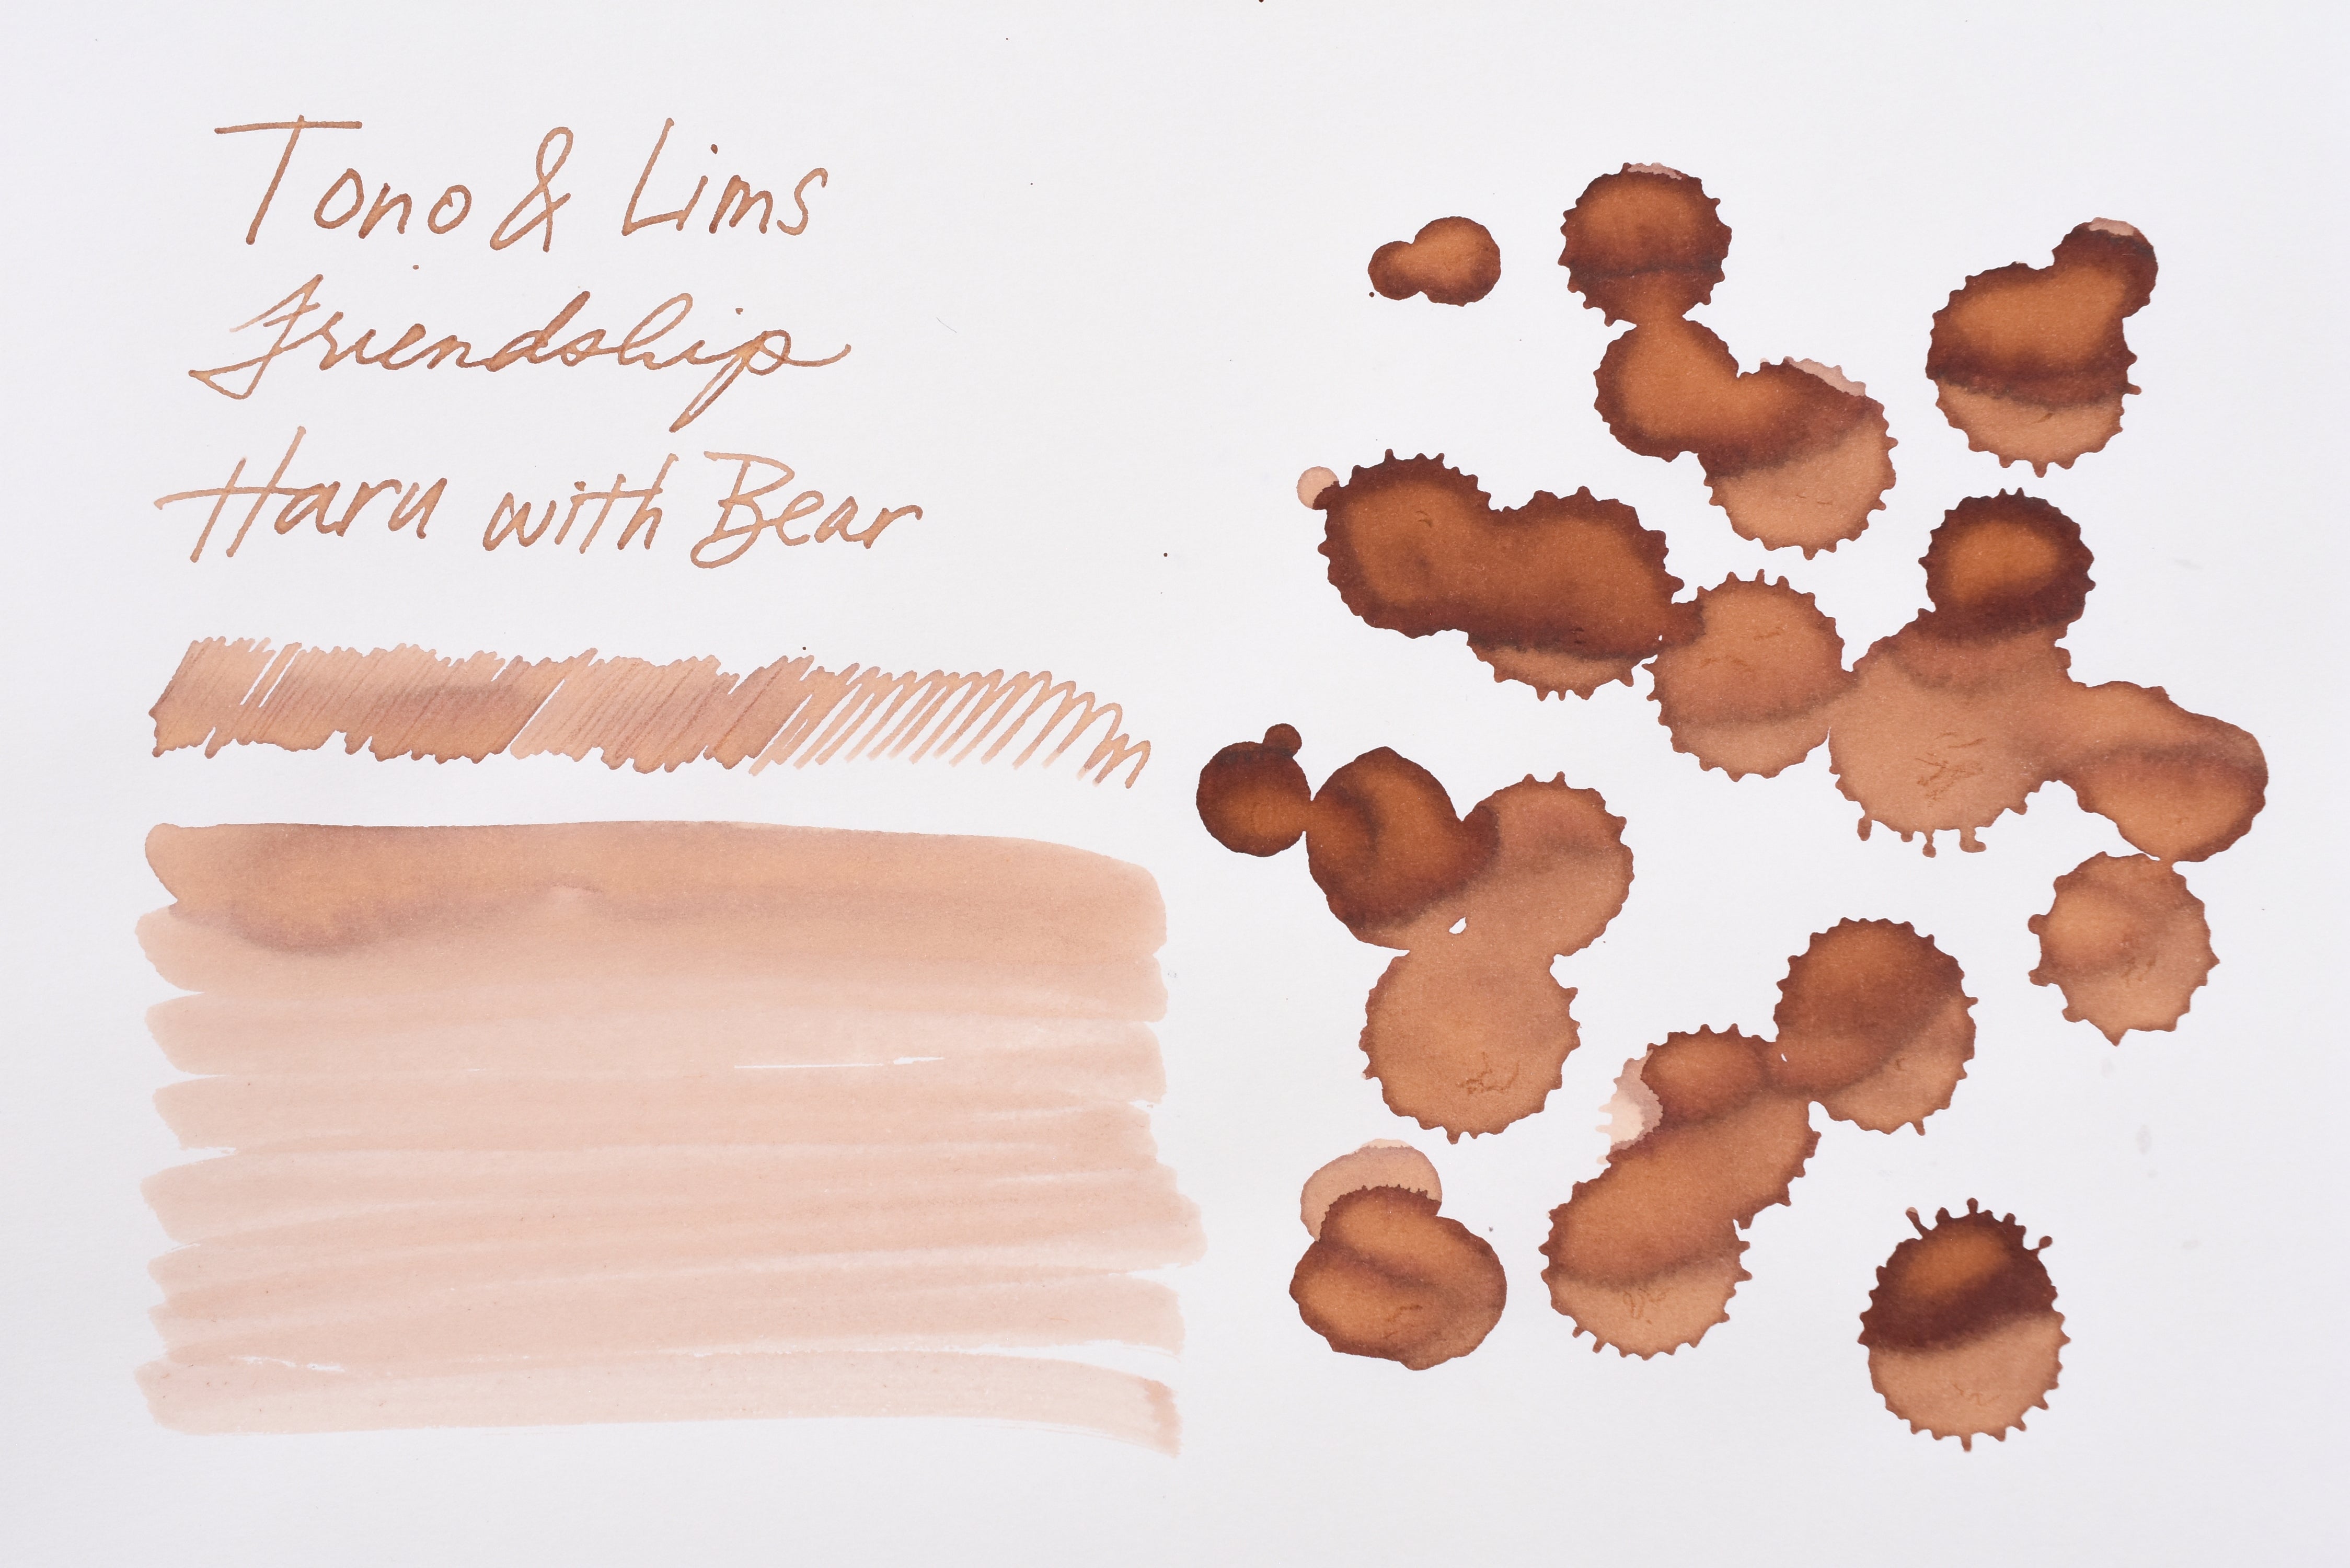 Tono & Lims
Friendship
Haru with Bear